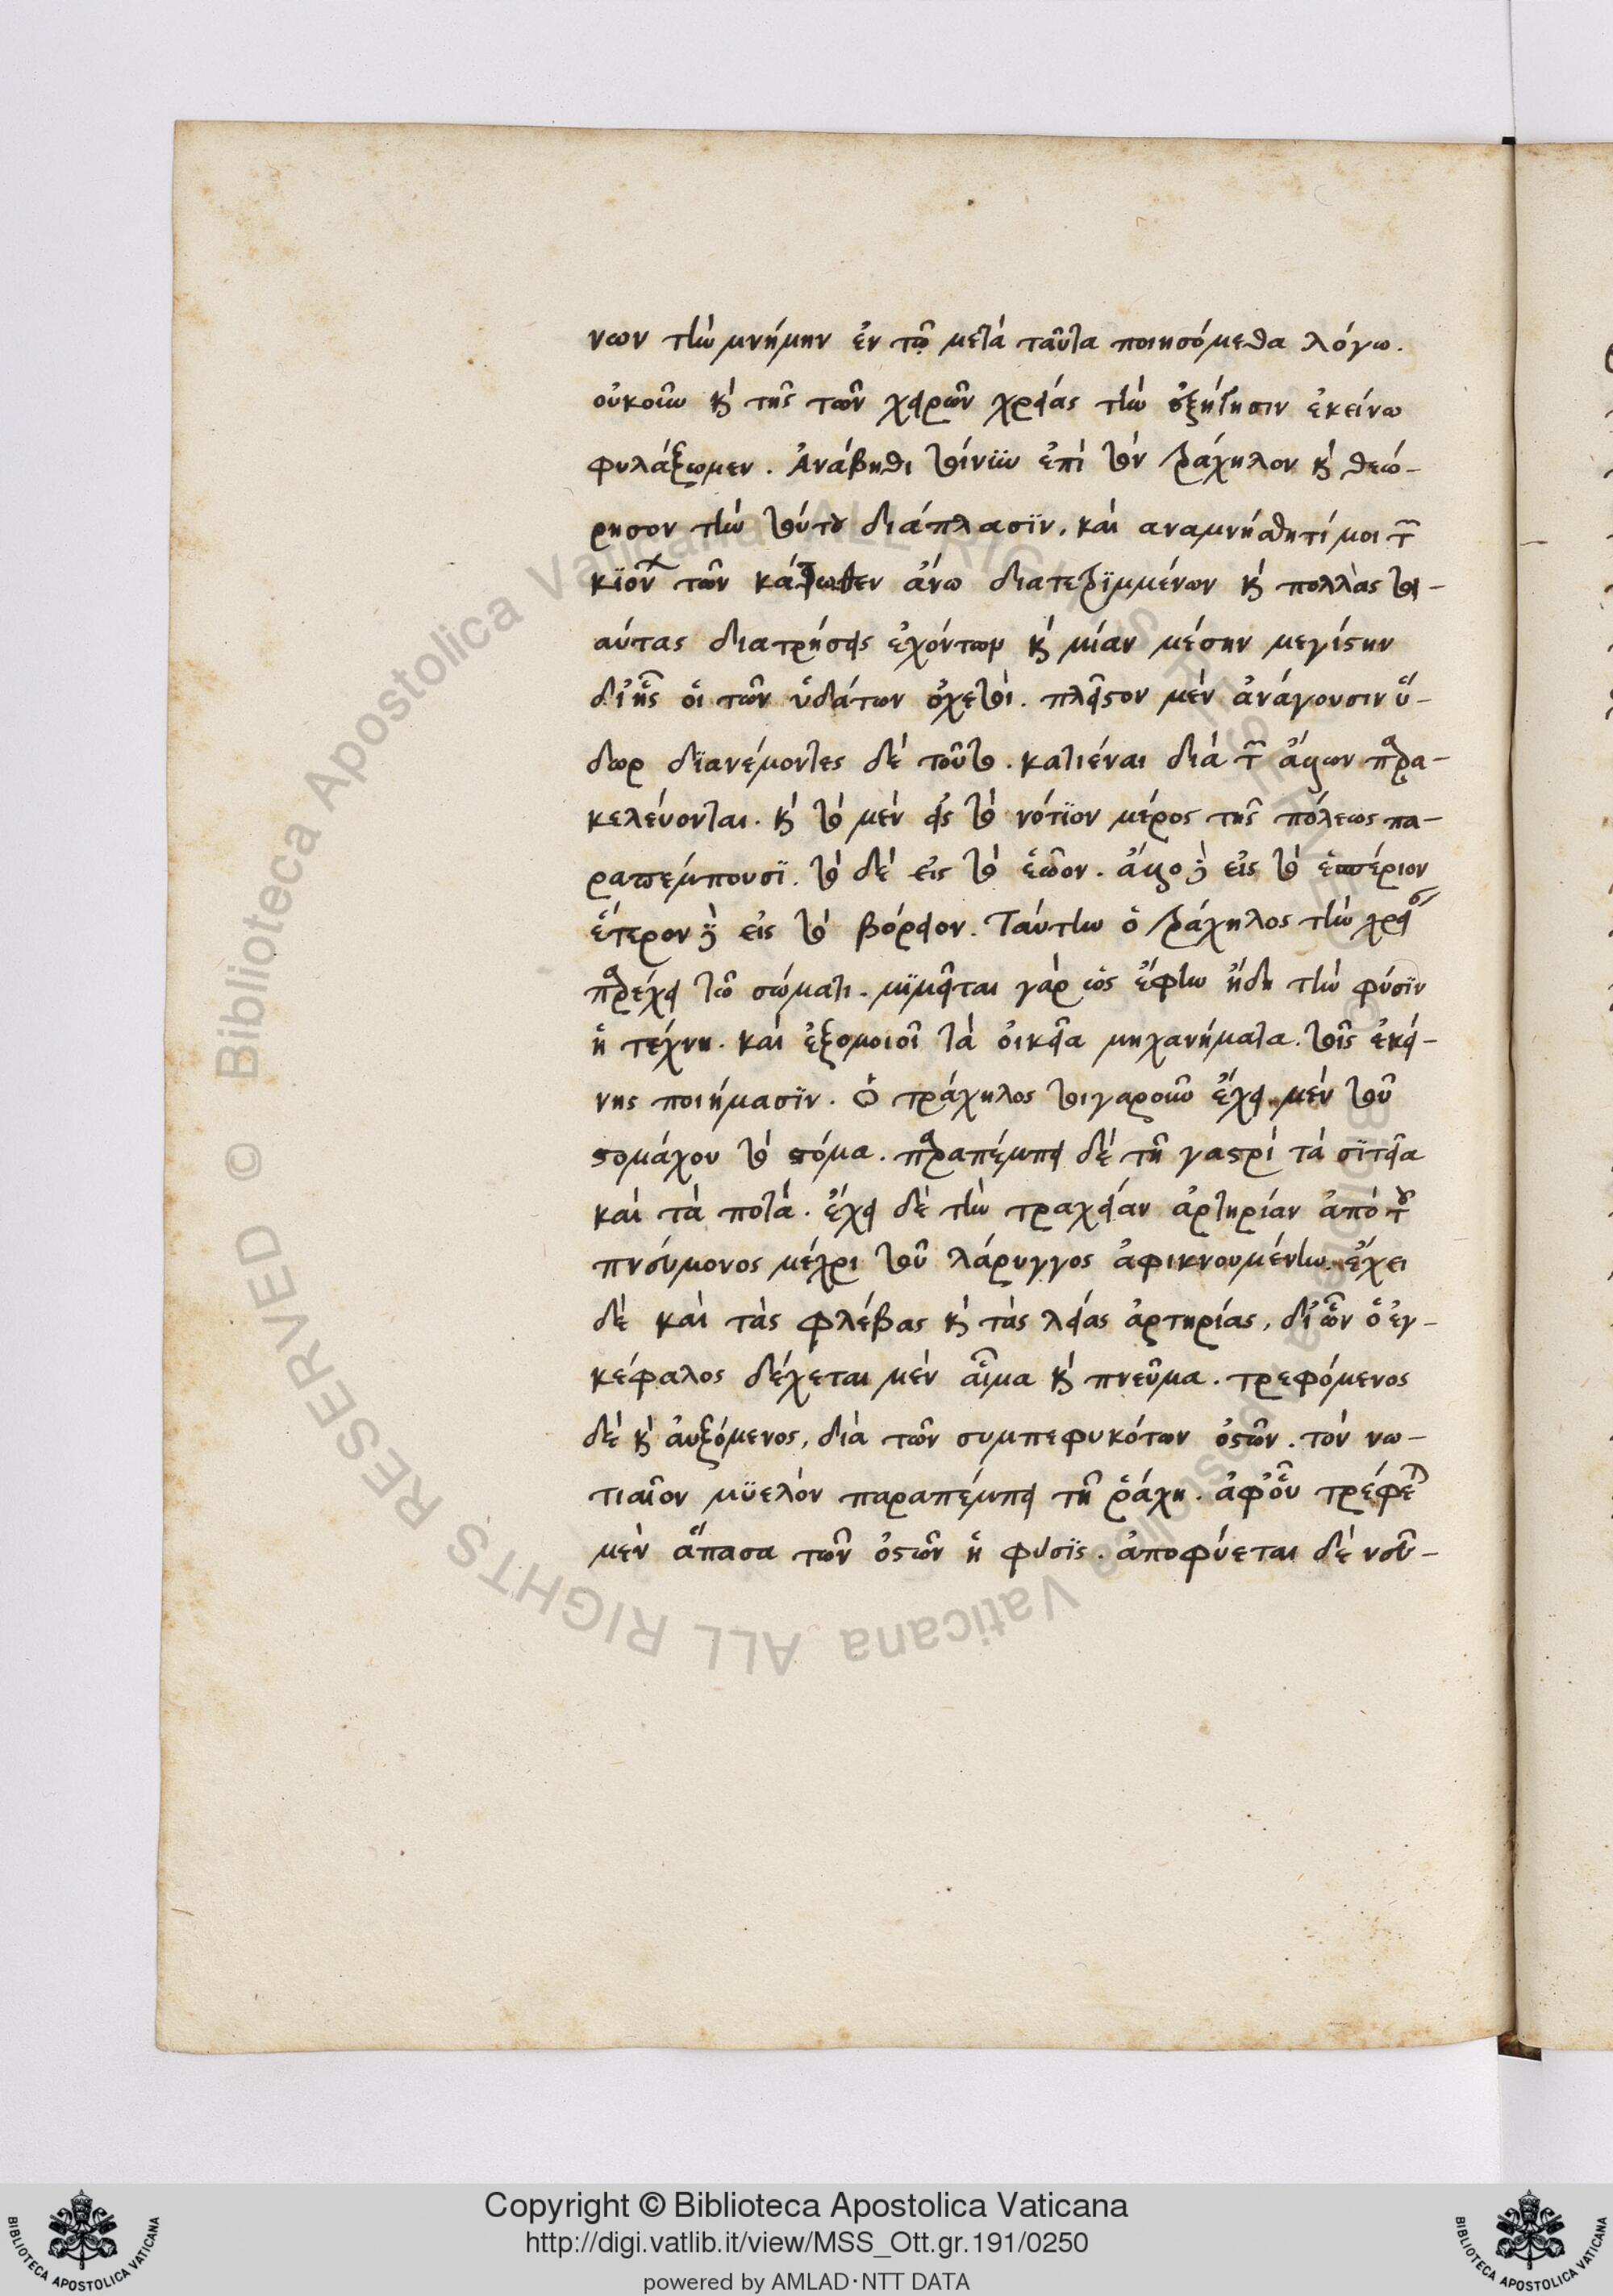 νων τὴν μνήμην ἐν τῷ μετὰ ταῦτα ποιησόμεθα λόγω.
οὐκοῦν κ̀ τῆς τῶν χειρῶν χρείας τὴν ἐξήγησιν ἐκείνω
φυλάξωμεν. Ἀνάβηθι τοίνϋν ἐπὶ τὸν τράχηλον κ̀ θεώ-
ρησον τὴν τούτου διάπλασϊν. καὶ αναμνήσθητί μοι τ̃
κϊόν<sup>χ</sup> τῶν κάτωθεν ἄνω διατετρϊμμένων κ̀ πολλὰς τοι-
αύτας διατρήσεις ἐχόντων κ̀ μίαν μέσην μεγίστην
δι᾽ ἧς οἱ τῶν ὑδάτων ὀχετοὶ. πλεῖστον μὲν ἀνάγουσιν ὕ-
δωρ δϊανέμοντες δὲ τοῦτο. κατιέναι διὰ τ̃ ἄλλων παρα-
κελεύονται. κ̀ τὸ μὲν εἰς τὸ νότϊον μέρος τῆς πόλεως πα-
ραπέμπουσϊ. τὸ δὲ εἰς τὸ ἑῶον. ἄλλο δὲ εἰς τὸ ἑσπέριον
ἕτερον δὲ εἰς τὸ βόρειον. Ταύτην ὁ τράχηλος τὴν χρεί
παρέχει τῶ σώματι. μϊμεῖται γὰρ ὡς ἔφην ἤδη τὴν φύσϊν
ἡ τέχνη. καὶ ἐξομοιοῖ τὰ οἰκεῖα μηχανήματα. τοῖς ἐκεί-
νης ποιήμασϊν. Ὁ τράχηλος τοιγαροῦν ἔχει μὲν τοῦ
στομάχου τὸ στόμα. παραπέμπει δὲ τῆ γαστρὶ τὰ σϊτεῖα
καὶ τὰ ποτά. ἔχει δὲ τὴν τραχεῖαν ἀρτηρίαν ἀπὸ τοῦ
πνεύμονος μέχρι τοῦ λάρυγγος ἀφικνουμένην. ἔχει
δὲ καὶ τὰς φλέβας κ̀ τὰς λείας ἀρτηρίας, δι᾽ ὧν ὁ ἐγ-
κέφαλος δέχεται μὲν αἷμα κ̀ πνεῦμα. τρεφόμενος
δὲ κ̀ αὐξόμενος, διὰ τῶν συμπεφυκότων ὀστῶν. τὸν νω-
τιαῖον μϋελὸν παραπέμπει τῆ ῥάχη. ἀφ᾽ οὗ τρέφεται
μὲν ἅπασα τῶν ὀστῶν ἡ φύσϊς. ἀποφύεται δὲ νεῦ-
Copyright © Biblioteca Apostolica Vaticana
http://digi.vatlib.it/view/MSS_Ott.gr.191/0250
powered by AMLAD·NTT DATA